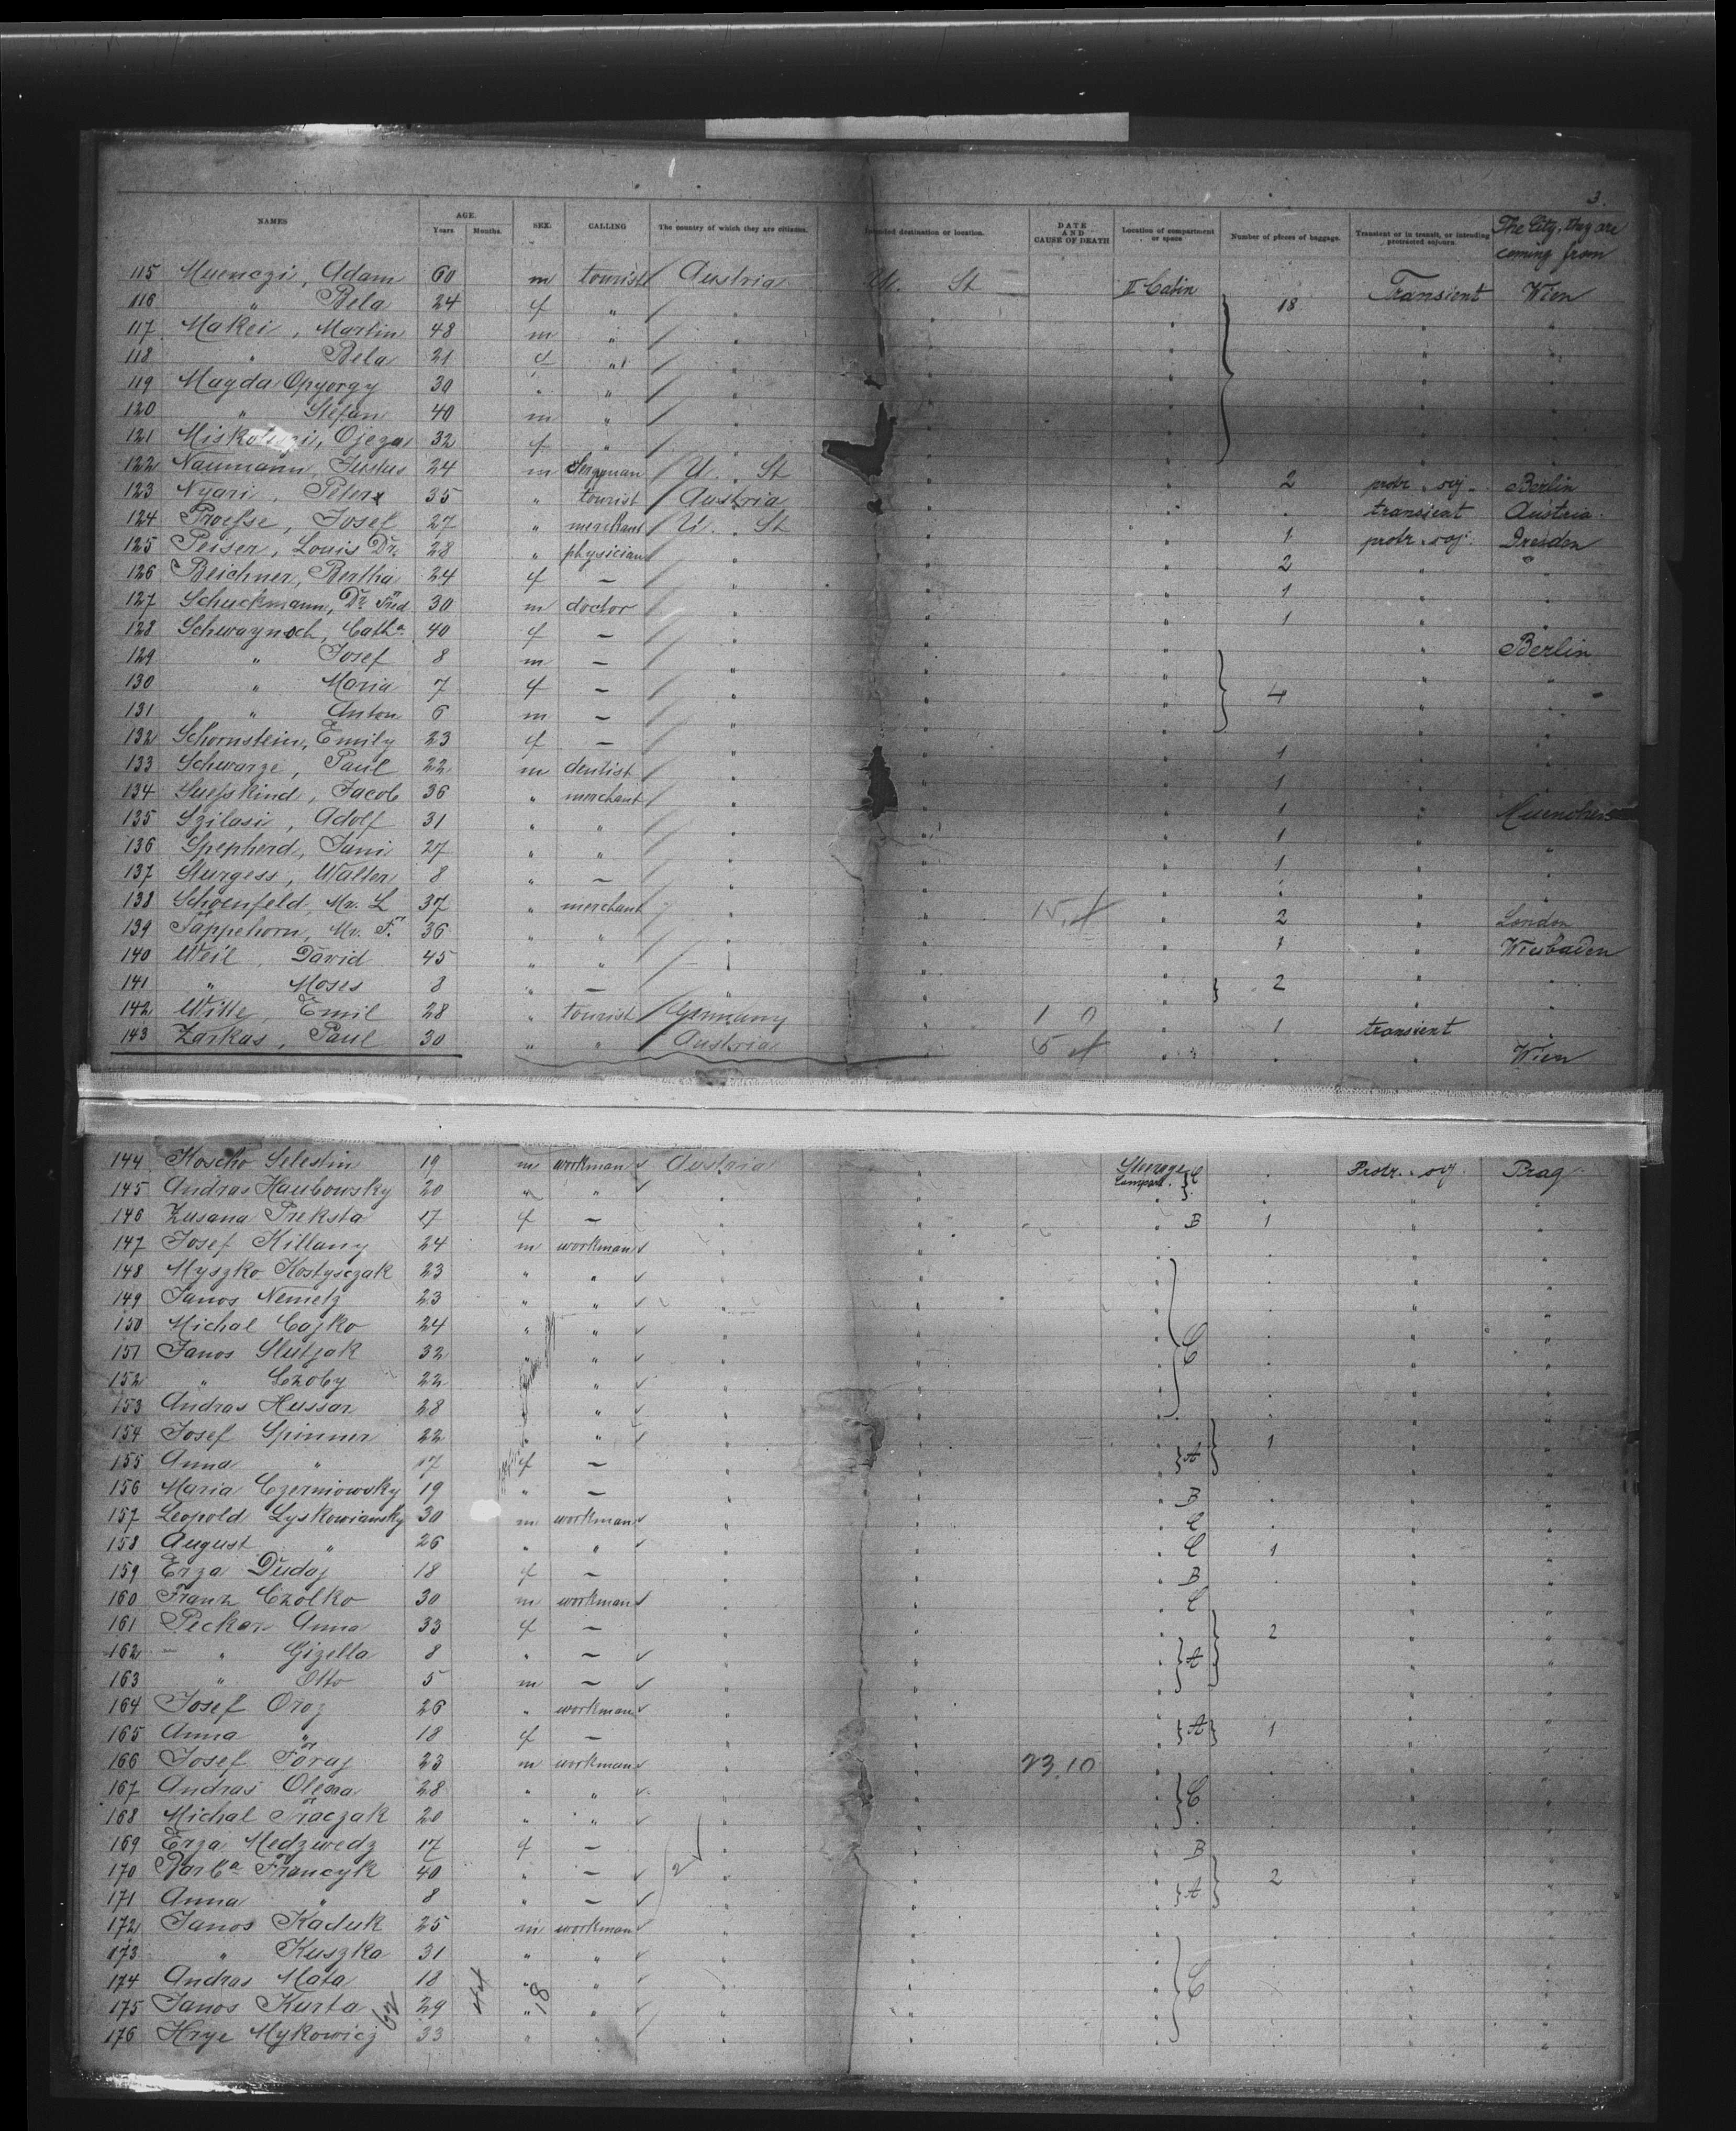 3.
NAMES AGE. Years Months. SEX. CALLING The country of which they are citizens. Intended destination or location. DATE AND CAUSE OF DEATH Location of compartment or space Number of pieces of baggage. Transient or in transit, or intending protracted sojourn. The City, they are coming from
115 Muenczi, Adam 60 m tourist Austria U. St II Cabin Transient Wien
116 " Bela 24 f " " " " 18 " "
117 Makei, Martin 48 m " " " " " "
118 " Bela 21 f " " " " " "
119 Magda Opyorgy 30 " " " " " " "
120 " Stefan 40 m " " " " " "
121 Ojeza 32 f " " " " " "
122 Naumann, Justus 24 m U. St " " 2 protr. soj. Berlin
123 Nyari, Peter 35 " tourist Austria " " " transient Austria
124 Proefse, Josef 27 " merchant U. St " " 1 protr. soj. Dresden
125 Peiser, Louis Dr. 28 " physician " " " 2 " "
126 Beichner, Bertha 24 f — " " " 1 " "
127 Schuckmann, Dr. Fred 30 m doctor " " " 1 " "
128 Schwaynoch, Cath a. 40 f — " " " " Berlin
129 " Josef 8 m — " " " " "
130 " Maria 7 f — " " " 4 " "
131 " Anton 6 m — " " " " "
132 Schornstein, Emily 23 f — " " " 1 " "
133 Schwarze, Paul 22 m dentist " " " 1 " "
134 Suefskind, Jacob 36 " merchant " " " 1 " Muenchen
135 Szilasi, Adolf 31 " " " " " 1 " "
136 Spepherd, Jani 27 " " " " " 1 " "
137 Sturgess, Walter 8 " — " " " " "
138 Schoenfeld, Mr. L 37 " merchant " " " 2 " London
139 Tappehorn, Mr. F. 36 " " " " " 1 " Wiesbaden
140 Weil, David 45 " " " " " " "
141 " Moses 8 " — " " " 2 " "
142 Witte, Emil 28 " tourist Germany " 1 0 " 1 transient "
143 Zarkas, Paul 30 " " Austria " " " " Wien
144 Koscho Selestin 19 m workman Austria " Steerage Compart. C " Protr. soj. Prag
145 Andras Haubowsky 20 " " " " " " " "
146 Zusana Preksta 17 f — " " " B 1 " "
147 Josef Killany 24 m workman " " " " " "
148 Myszko Kostysczak 23 " " " " " " " "
149 Janos Nemetz 23 " " " " " " " "
150 Michal Cajko 24 " " " " " " " "
151 Janos Slutjak 32 " " " " " C " " "
152 " Czoby 22 " " " " " " " "
153 Andras Hussar 28 " " " " " " " "
154 Josef Spinner 22 " " " " " 1 " "
155 Anna " 17 f — " " " A " "
156 Maria Czerniowsky 19 " — " " " B " " "
157 Leopold Lyskowiansky 30 m workman " " " C " " "
158 August " 26 " " " " " C 1 " "
159 Erza Dudaj 18 f — " " " B " " "
160 Franz Czolko 30 m workman " " " C " "
161 Peckar Anna 33 f — " " " 2 " "
162 " Gizella 8 " — " " " A " "
163 " Otto 5 m — " " " " "
164 Josef Oroz 26 " workman " " " " "
165 Anna " 18 f — " " " A 1 " "
166 Josef Toraj 23 m workman " " 23.10 " " " "
167 Andras Olexa 28 " " " " " C " " "
168 Michal Traczak 20 " " " " " " " "
169 Erza Medzwedz 17 f — " " " B " "
170 Barb a Francyk 40 " — " " " 2 " "
171 Anna " 8 " — " " " A " "
172 Janos Kaduk 25 m workman " " " " " "
173 " Kuszka 31 " " " " " " " "
174 Andras Mata 18 " " " " " C " "
175 Janos Kurta 29 " " " " " " "
176 Hrye Mykowicz 33 " " " " " " " "
62 44 18